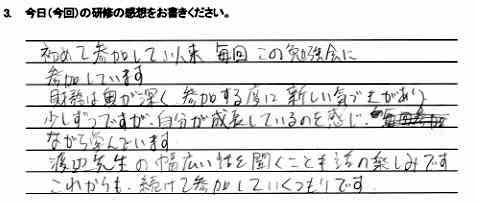 3. 今日(今回)の研修の感想をお書きください。
初めて参加して以来 毎回 この勉強会に
参加しています
財務は奥が深く 参加する度に 新しい気づきがあり
少しずつですが、自分が成長しているのを感じ
ながら学んでいます
渡辺先生の幅広い話を聞くことも 楽しみです
これからも、続けて参加していくつもりです